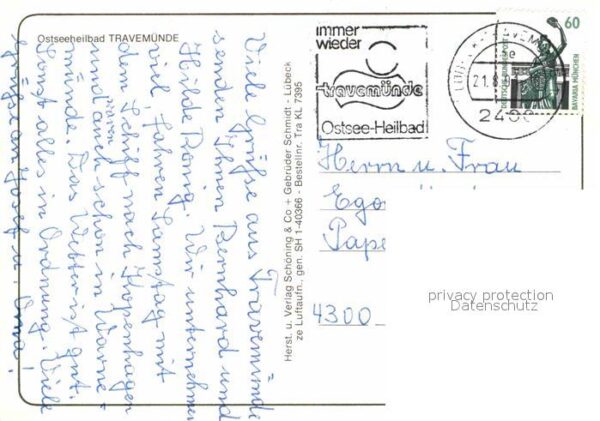 Ostseeheilbad TRAVEMÜNDE
Viele Grüße aus Travemünde
senden Ihnen Reinhard und
Hilde König. Wir unternehmen
viel fahren Samstag mit
dem Schiff nach Kopenhagen
und auch schon in Warne-
münde waren. Das Wetter ist gut.
Sonst alles in Ordnung. Viele
Grüße an Josef u. Oma!
Herst. u. Verlag Schöning & Co + Gebrüder Schmidt - Lübeck
ze Luftaufn., gen. SH 1-40366 - Bestellnr. Tra KL 7395
immer
wieder
travemünde
Ostsee-Heilbad
21.8
2400
60
DEUTSCHE BUNDESPOST
BAVARIA MÜNCHEN
Herrn u. Frau
Ego
Pape
4300
privacy protection
Datenschutz